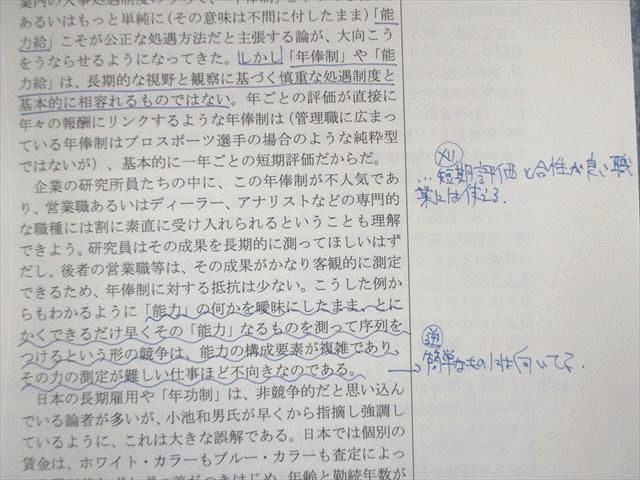 業内の人事処遇制度のうちで、「年俸制」
あるいはもっと単純に(その意味は不問に付したまま)「能
力給」こそが公正な処遇方法だと主張する論が、大向こう
をうならせるようになってきた。しかし「年俸制」や「能
力給」は、長期的な視野と観察に基づく慎重な処遇制度と
基本的に相容れるものではない。年ごとの評価が直接に
年々の報酬にリンクするような年俸制は(管理職に広まっ
ている年俸制はプロスポーツ選手の場合のような純粋型
ではないが)、基本的に一年ごとの短期評価だからだ。
企業の研究所員たちの中に、この年俸制が不人気であ
り、営業職あるいはディーラー、アナリストなどの専門的
な職種には割に素直に受け入れられるということも理解
できよう。研究員はその成果を長期的に測ってほしいはず
だし、後者の営業職等は、その成果がかなり客観的に測定
できるため、年俸制に対する抵抗は少ない。こうした例か
らもわかるように「能力」の何かを曖昧にしたまま、とに
かくできるだけ早くその「能力」なるものを測って序列を
つけるという形の競争は、能力の構成要素が複雑であり、
その力の測定が難しい仕事ほど不向きなのである。
日本の長期雇用や「年功制」は、非競争的だと思い込ん
でいる論者が多いが、小池和男氏が早くから指摘し強調し
ているように、これは大きな誤解である。日本では個別の
賃金は、ホワイト・カラーもブルー・カラーも査定によっ
はじめ、年齢と勤続年数が
メリ
…短期評価と合性が良い職
業には使える.
逆
→簡単なものには向いてる.